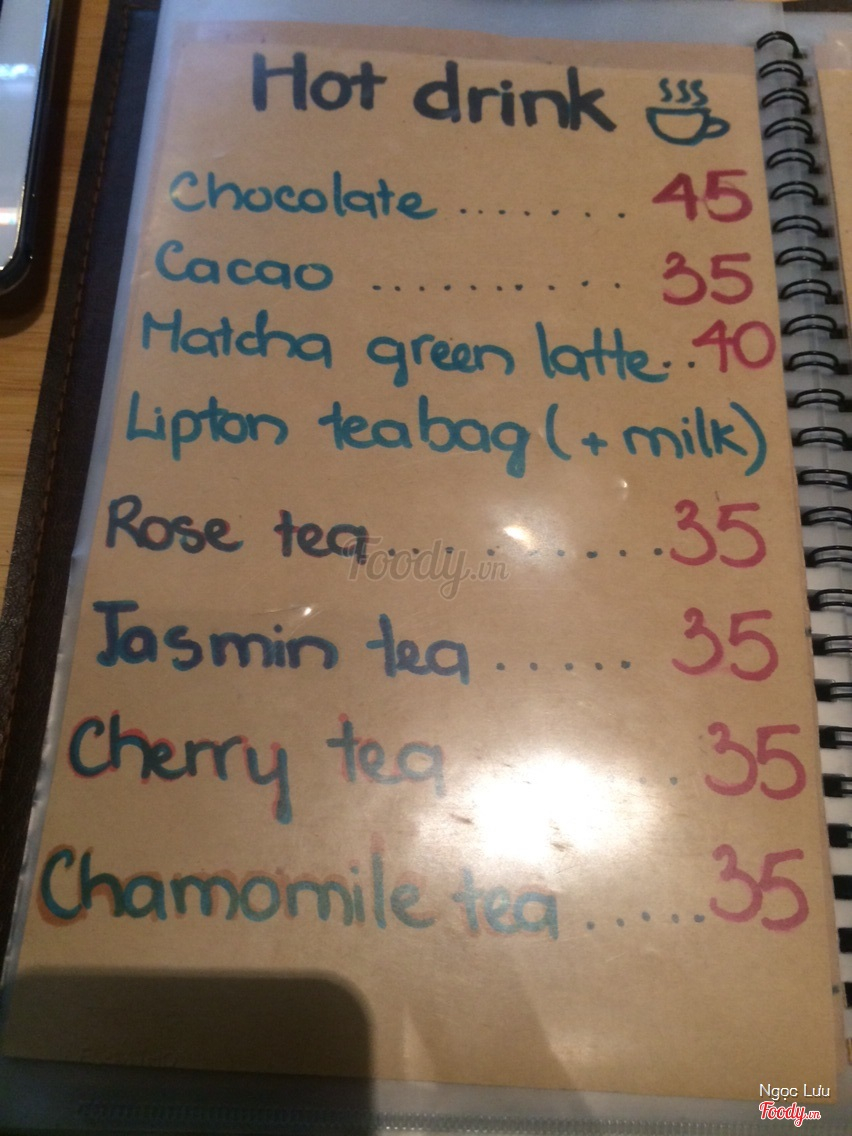 Hot drink
Chocolate ....... 45
Cacao .......... 35
Matcha green latte..40
Lipton teabag (+ milk)
Rose tea..........35
Foody.vn
Jasmin tea ..... 35
Cherry tea . 35
Chamomile tea .....35
Ngọc Lưu
Foody.vn